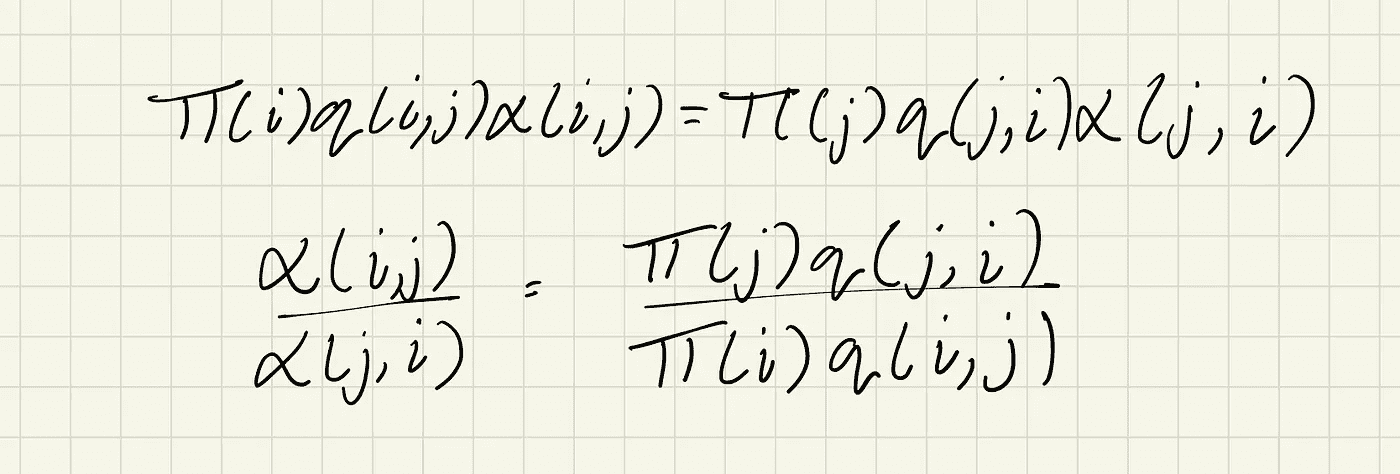 π(i)q(i,j)α(i,j)=π(j)q(j,i)α(j,i)
α(i,j)/α(j,i) = π(j)q(j,i)/π(i)q(i,j)